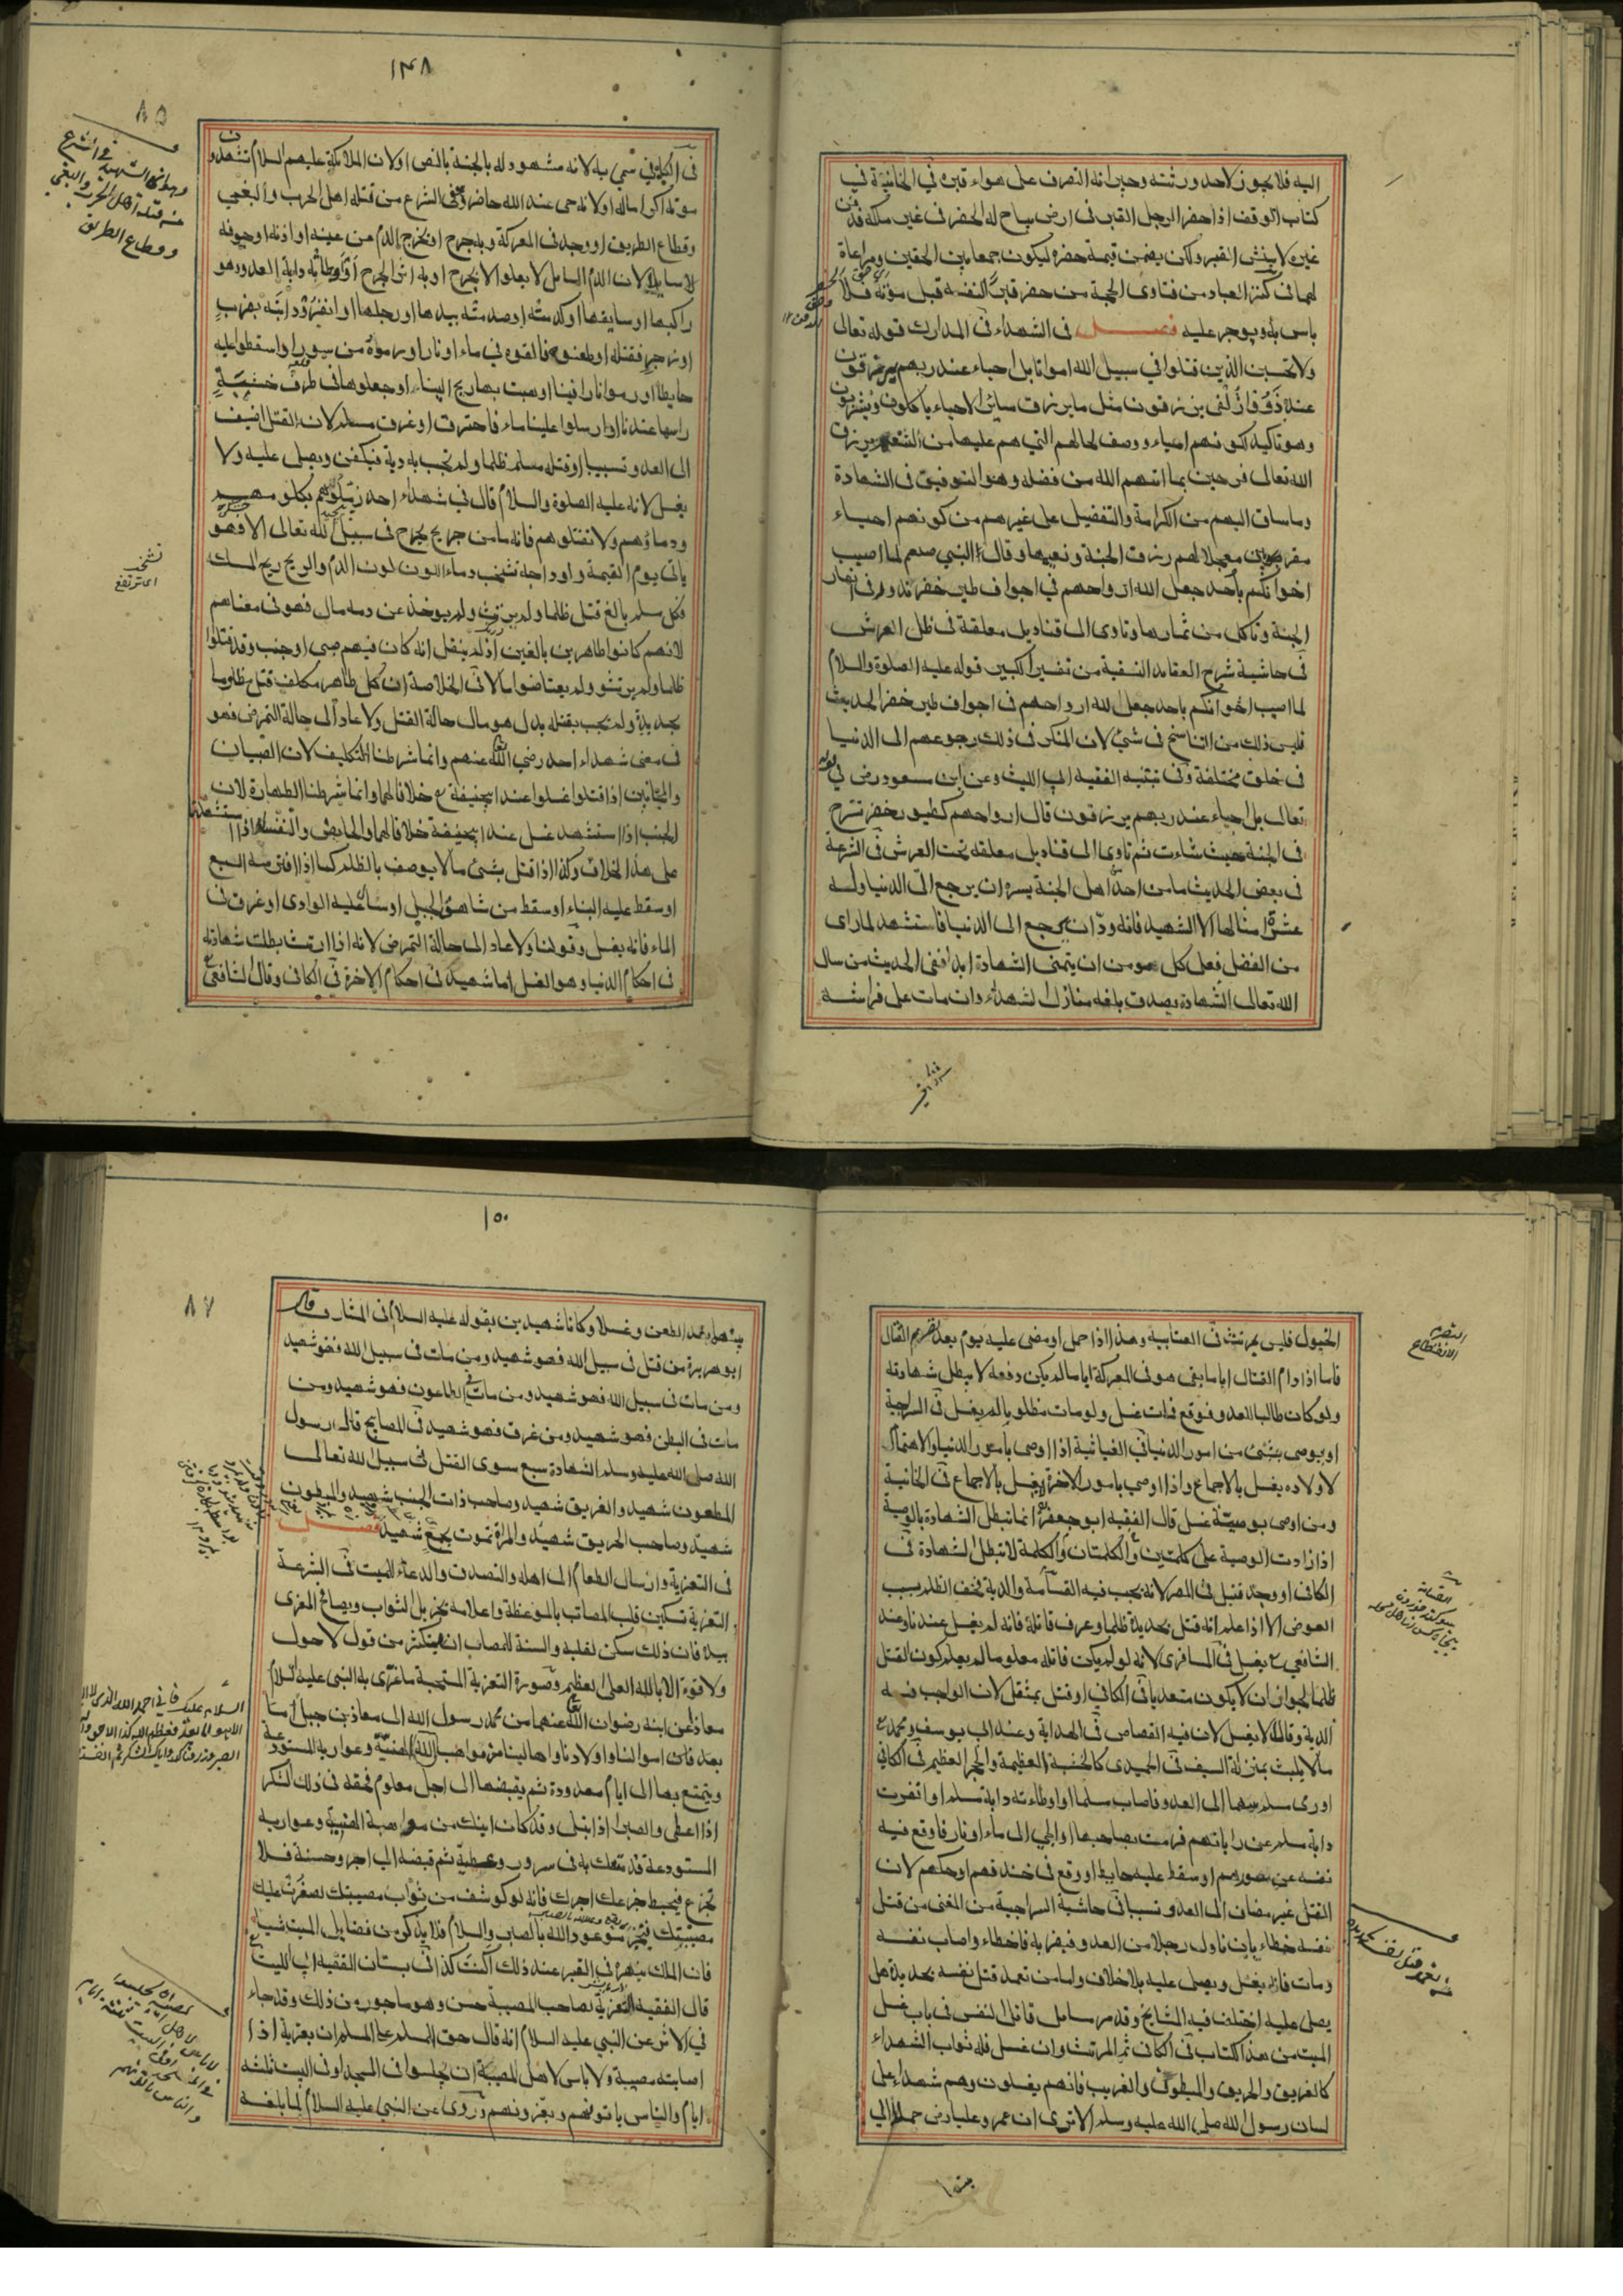 اليه فلا يجوز لاحد ورثته وجيرانه التصرف على هواء قبره في الخانية في
كتاب الوقف اذا حفر الرجل القبر في ارض يباح له الحفر في غير ملكه فدفن
غيره لا ينبش القبر ولكن يضمن قيمة حفره ليكون جمعا بين الحقين ومراعاة
لهما في كنز العباد من فتاوى الحجة من حفر قبرا لنفسه قبل موته فلا
باس به ويوجر عليه فصل في الشهداء في المدارك قوله تعالى
ولا تحسبن الذين قتلوا في سبيل الله امواتا بل احياء عند ربهم يرزقون
عنده يرزقون مثل ما يرزق سائر الاحياء ياكلون ويشربون
وهو تاكيد لكونهم احياء ووصف لحالهم التي هم عليها من التنعم برزق
الله تعالى فرحين بما اتيهم الله من فضله وهو التوفيق في الشهادة
وما ساق اليهم من الكرامة والتفضيل على غيرهم من كونهم احياء
مقربين معجلا لهم رزق الجنة ونعيمها وقال النبي صلعم لما اصيب
اخوانكم باحد جعل الله ارواحهم في اجواف طير خضر تدور في انهار
الجنة وتاكل من ثمارها وتاوى الى قناديل معلقة في ظل العرش
في حاشية شرح العقايد النسفية من تفسير الكبير قوله عليه الصلوة والسلام
لما اصيب اخوانكم باحد جعل الله ارواحهم في اجواف طير خضر الحديث
فليس ذلك من التناسخ في شئ لان المنكر في ذلك رجوعهم الى الدنيا
في خلق مختلفة وفي تنبيه الفقيه ابي الليث وعن ابن مسعود رض في قوله
تعالى بل احياء عند ربهم يرزقون قال ارواحهم كطيور خضر تسرح
في الجنة حيث شاءت ثم تاوى الى قناديل معلقة تحت العرش في الشرعة
في بعض الحديث ما من احد اهل الجنة يسره ان يرجع الى الدنيا وله
عشرة امثالها الا الشهيد فانه ود ان يرجع الى الدنيا فاستشهد لما راى
من الفضل فعلى كل مومن ان يتمنى الشهادة ابدا ففي الحديث من سال
الله تعالى الشهادة بصدق بلغه منازل الشهداء وان مات على فراشه
١٤٨
٨٥
في الكافي سمي به لانه مشهود له بالجنة بالنص او لان الملائكة عليهم السلام تشهدون
موته اكراما له او لانه حي عند الله حاضر وفي الشرع من قتله اهل الحرب والبغي
وقطاع الطريق او وجد في المعركة وبه جرح او يخرج الدم من عينه او اذنه او جوفه
سايلا لان الدم السايل لا يعلو الا بجرح او به اثر الجرح او اوطائه دابة العدو وهو
راكبها او سايقها او كدمته او صدمته بيدها او رجلها او انفروا دابته بضرب
او زجر فقتله او طعنوه فالقوه في ماء او نار او رموه من سور او اسقطوا عليه
حايطا او رموا نارا فينا او هبت بها ريح الينا او جعلوها في طرف خشبة
راسها عندنا او ارسلوا علينا ماء فاحترق او غرق مسلم لان القتل اضيف
الى العدو تسبيبا او قتله مسلم ظلما ولم تجب به دية فيكفن ويصلى عليه ولا
يغسل لانه عليه الصلوة والسلام قال في شهداء احد زملوهم بكلومهم
ودمائهم ولا تغسلوهم فانه ما من جريح يجرح في سبيل الله تعالى الا وهو
ياتي يوم القيمة واوداجه تشخب دماء اللون لون الدم والريح ريح المسك
فكل مسلم بالغ قتل ظلما ولم يرتث ولم يوخذ عن دمه مال فهو في معناهم
لانهم كانوا طاهرين بالغين اذ لم ينقل انه كان فيهم صبي او جنب وقد قتلوا
ظلما ولم يرتثوا ولم يعتاضوا مالا في الخلاصة ان كل طاهر مكلف قتل مظلوما
بحديدة ولم تجب بقتله بدل هو مال حالة القتل ولا عاد الى حالة التمرض فهو
في معنى شهداء احد رضي الله عنهم وانما شرطنا التكليف لان الصبيان
والمجانين اذا قتلوا غسلوا عند ابيحنيفة رح خلافا لهما وانما شرطنا الطهارة لان
الجنب اذا استشهد غسل عند ابيحنيفة خلافا لهما والحايض والنفساء اذا استشهدتا
على هذا الخلاف وكذا اذا قتل بشئ ما لا يوصف بالظلم كما اذا افترسه السبع
او سقط عليه البناء او سقط من شاهق الجبل او سال عليه الوادى او غرق في
الماء فانه يغسل وقولنا ولا عاد الى حالة التمرض لانه اذا ارتث بطلت شهادته
في احكام الدنيا وهو الغسل اما شهيد في احكام الاخرة في الكافي وقال الشافعي
الشهيد في الشرع
من قتله اهل الحرب والبغي
وقطاع الطريق
تشخب
اى ترتفع
الخيول فليس بمرتث في العتابية وهذا اذا حمل او مضى عليه يوم بعد تصرم القتال
فاما اذا دام القتال اياما بقي هو في المعركة اياما لم يكن دفعه لا يبطل شهادته
ولو كان طالبا للعدو فوقع فمات غسل ولو مات مظلوبا لم يغسل في السراجية
او يوصى بشئ من امور الدنيا في الغياثية اذا اوصى بامور الدنيا والاهتمام
لاولاده يغسل بالاجماع واذا اوصى بامور الاخرة يغسل بالاجماع في الخانية
ومن اوصى بوصية غسل قال الفقيه ابو جعفر انما تبطل الشهادة بالوصية
اذا زادت الوصية على كلمتين والكلمتان والكلمة لا تبطل الشهادة في
الكافي او وجد قتيل في المصر لانه يجب فيه القسامة والدية فخف الظلم بسبب
العوض الا اذا علم انه قتل بحديدة ظلما وعرف قاتله فانه لم يغسل عندنا وعند
الشافعي رح يغسل في المسافرى لانه لو لم يكن قاتله معلوما لم يعلم كون القتل
ظلما لجواز ان لا يكون متعديا في الكافي او قتل بمثقل لان الواجب فيه
الدية وقالا لا يغسل لان فيه القصاص في الهداية وعند ابي يوسف ومحمد رح
ما لا يلبث بمنزلة السيف في الحميدى كالخشبة العظيمة والحجر العظيم في الكافي
او رمى مسلم سهما الى العدو فاصاب مسلما او اوطاءته دابة مسلم او انفرت
دابة مسلم عن راياتهم فرمت بصاحبها او الجي الى ماء او نار فاوقع فيه
نفسه عن سورهم او سقط عليه حايط او وقع في خندقهم او حكهم لان
القتل غير مضاف الى العدو تسببا في حاشية السراجية من المغنى من قتل
نفسه خطاء بان ناول رجلا من العدو فيضربه فاخطاء واصاب نفسه
ومات فانه يغسل ويصلى عليه بلا خلاف واما من تعمد قتل نفسه بحديدة هل
يصلى عليه اختلف فيه المشايخ وقد مر مسايل قاتل النفس في باب غسل
الميت من هذا الكتاب في الكافي ثم المرتث وان غسل فله ثواب الشهداء
كالغريق والحريق والمبطون والغريب فانهم يغسلون وهم شهداء على
لسان رسول الله صلى الله عليه وسلم الا ترى ان عمر وعليا رض حملا الى
التصرم
الانقطاع
القسامة
١٥٠
٨٧
بيتهما بعد الطعن وغسلا وكانا شهيدين بقوله عليه السلام في المشارق قال
ابو هريرة من قتل في سبيل الله فهو شهيد ومن مات في سبيل الله فهو شهيد
ومن مات في سبيل الله فهو شهيد ومن مات في الطاعون فهو شهيد ومن
مات في البطن فهو شهيد ومن غرق فهو شهيد في المصابيح قال رسول
الله صلى الله عليه وسلم الشهادة سبع سوى القتل في سبيل الله تعالى
المطعون شهيد والغريق شهيد وصاحب ذات الجنب شهيد والمبطون
شهيد وصاحب الحريق شهيد والمراة تموت بجمع شهيد فصل
في التعزية وارسال الطعام الى اهله والتصدق والدعاء للميت في الشرعة
التعزية تسكين قلب المصاب بالموعظة واعلامه بجزيل الثواب ويصافح المعزى
بيده فان ذلك سكن لقلبه والسنة للمصاب ان يكثر من قول لا حول
ولا قوة الا بالله العلى العظيم وصورة التعزية المستحبة ما عزى به النبي عليه السلام
معاذا عن ابنه رضوان الله عنهما من محمد رسول الله الى معاذ بن جبل اما
بعد فان اموالنا واولادنا واهالينا من مواهب الله الهنيئة وعواريه المستودعة
ويتمتع بها الى ايام معدودة ثم يقبضها الى اجل معلوم فحقه في ذلك الشكر
اذا اعطى والصبر اذا ابتلى وقد كان ابنك من مواهبه الهنيئة وعواريه
المستودعة قد متعك به في سرور وعطية ثم قبضه الى اجر وحسنة فلا
تجزع فيحبط جزعك اجرك فانه لو كوشف من ثواب مصيبتك لصغرت عليك
مصيبتك فتنجز موعود الله بالصبر والسلام فلا يذكر من فضايل الميت شيئا
فان الملك ينهره في القبر عند ذلك اكنت كذا في بستان الفقيه ابي الليث
قال الفقيه التعزية لصاحب المصيبة حسن وهو ماجور من ذلك وقد جاء
في الاثر عن النبي عليه السلام انه قال حق المسلم على المسلم ان يعزيه اذا
اصابته مصيبة ولا باس لاهل المصيبة ان يجلسوا في المسجد او في البيت ثلثة
ايام والناس ياتونهم ويعزونهم وروى عن النبي عليه السلام لما بلغه